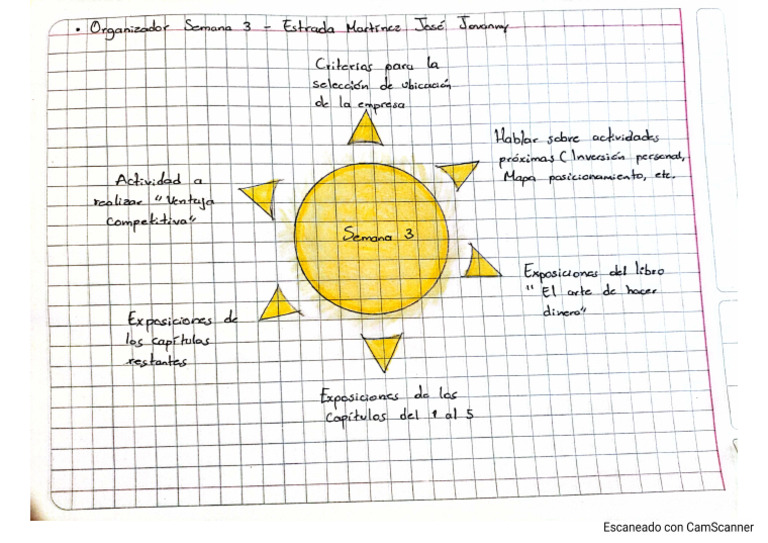 • Organizador Semana 3 - Estrada Martínez José Jovanny
Criterios para la
selección de ubicación
de la empresa
Hablar sobre actividades
próximas ( Inversión personal,
Mapa posicionamiento, etc.
Actividad a
realizar "Ventaja
Competitiva"
Semana 3
Exposiciones del libro
"El arte de hacer
dinero"
Exposiciones de
los capítulos
restantes
Exposiciones de los
Capítulos del 1 al 5
Escaneado con CamScanner